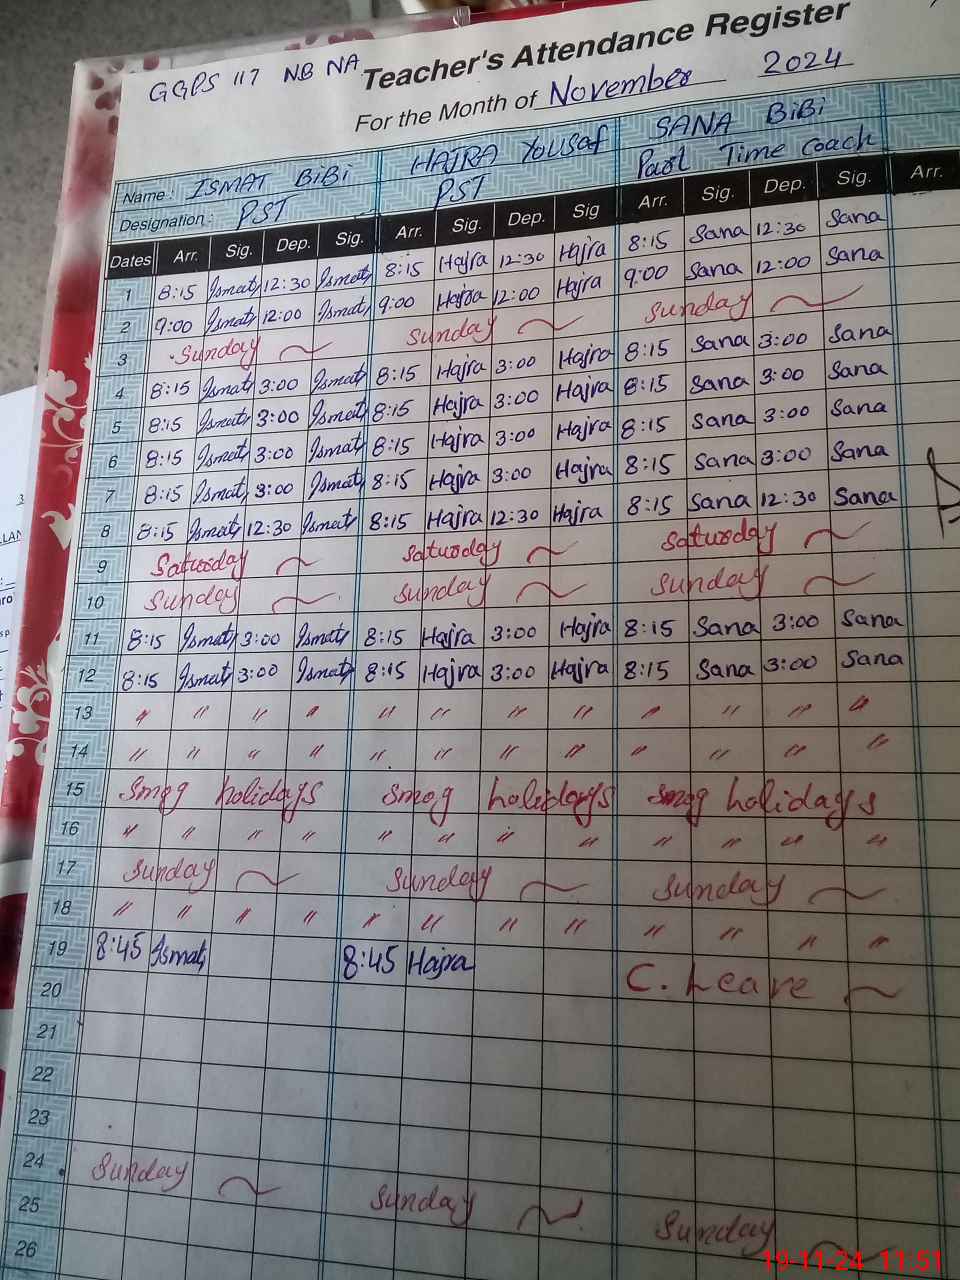 GGPS 117 NB NA
Teacher's Attendance Register
For the Month of November 2024
Name: ISMAT BiBi HAJRA Yousaf SANA BiBi
Designation: PST PST Part Time Coach
Dates Arr. Sig. Dep. Sig. Arr. Sig. Dep. Sig Arr. Sig. Dep. Sig. Arr.
1 8:15 Ismat 12:30 Ismat 8:15 Hajra 12:30 Hajra 8:15 Sana 12:30 Sana
2 9:00 Ismat 12:00 Ismat 9:00 Hajra 12:00 Hajra 9:00 Sana 12:00 Sana
3 Sunday Sunday Sunday
4 8:15 Ismat 3:00 Ismat 8:15 Hajra 3:00 Hajra 8:15 Sana 3:00 Sana
5 8:15 Ismat 3:00 Ismat 8:15 Hajra 3:00 Hajra 8:15 Sana 3:00 Sana
6 8:15 Ismat 3:00 Ismat 8:15 Hajra 3:00 Hajra 8:15 Sana 3:00 Sana
7 8:15 Ismat 3:00 Ismat 8:15 Hajra 3:00 Hajra 8:15 Sana 3:00 Sana
8 8:15 Ismat 12:30 Ismat 8:15 Hajra 12:30 Hajra 8:15 Sana 12:30 Sana
9 Saturday Saturday Saturday
10 Sunday Sunday Sunday
11 8:15 Ismat 3:00 Ismat 8:15 Hajra 3:00 Hajra 8:15 Sana 3:00 Sana
12 8:15 Ismat 3:00 Ismat 8:15 Hajra 3:00 Hajra 8:15 Sana 3:00 Sana
13 " " " " " " " " " " " "
14 " " " " " " " " " " " "
15 Smog holidays Smog holidays Smog holidays
16 " " " " " " " " " " " "
17 Sunday Sunday Sunday
18 " " " " " " " " " " " "
19 8:45 Ismat 8:45 Hajra C. Leave
20
21
22
23
24 Sunday Sunday Sunday
25
26
19-11-24 11:51